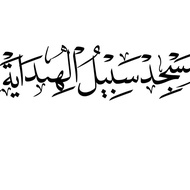 مَسْجِد سَبِيلُ الْهِدَايَة